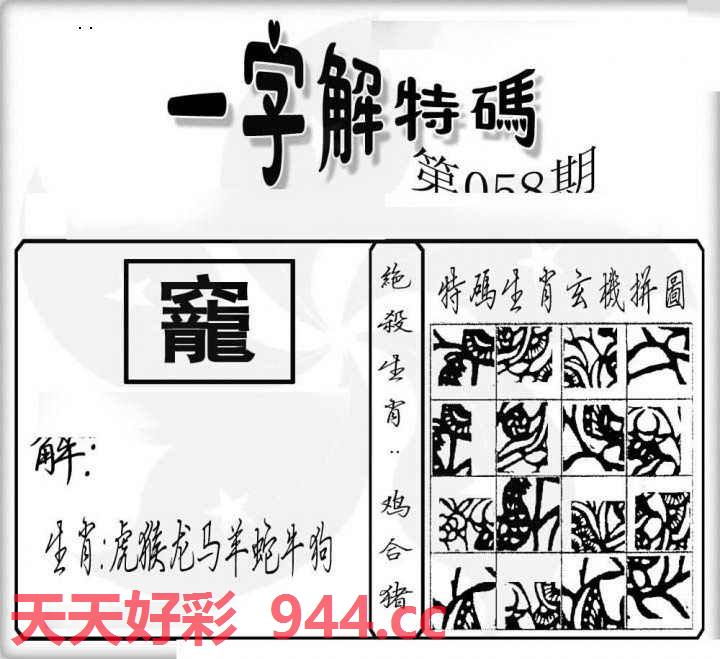 一字解特碼
第058期
竉
解:
生肖:虎猴龙马羊蛇牛狗
絶殺生肖：鸡合猪
特碼生肖玄機拼圖
天天好彩 944.cc